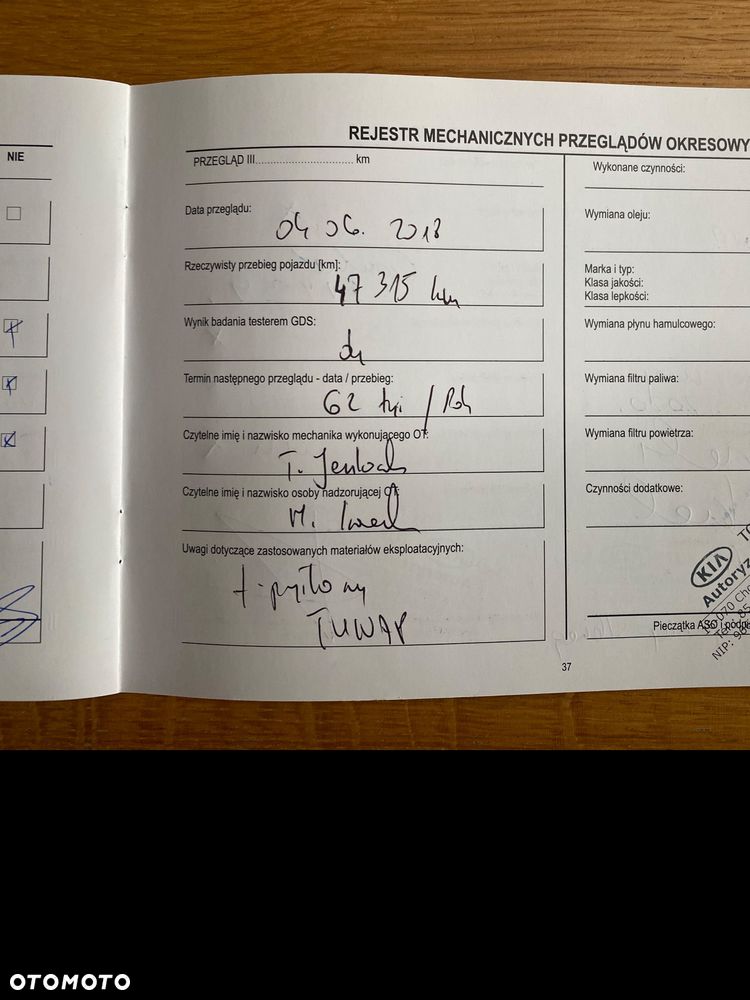 NIE
REJESTR MECHANICZNYCH PRZEGLĄDÓW OKRESOWY
PRZEGLĄD III................................. km
Data przeglądu:
04 06. 2018
Rzeczywisty przebieg pojazdu [km]:
47 315 km
Wynik badania testerem GDS:
Termin następnego przeglądu - data / przebieg:
62 tyś / Rok
Czytelne imię i nazwisko mechanika wykonującego OT:
T.
Czytelne imię i nazwisko osoby nadzorującej OT:
M.
Uwagi dotyczące zastosowanych materiałów eksploatacyjnych:
f-pyłowy
TUNAP
37
Wykonane czynności:
Wymiana oleju:
Marka i typ:
Klasa jakości:
Klasa lepkości:
Wymiana płynu hamulcowego:
Wymiana filtru paliwa:
Wymiana filtru powietrza:
Czynności dodatkowe:
KIA
Autoryz
NIP:
Pieczątka ASO i podpi
OTOMOTO